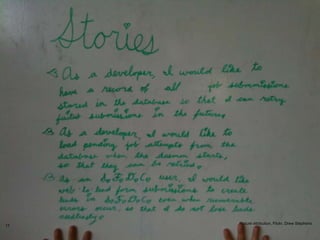 Stories
As a developer, I would like to
have a record of all job submissions
stored in the database so that I can retry
failed submissions in the future.
As a developer, I would like to
load pending job attempts from the
database when the daemon starts,
so that they can be retried.
As an user, I would like
web to lead form submissions to create
leads in even when recoverable
errors occur, so that I do not lose leads
needlessly.
17
Picture attribution, Flickr: Drew Stephens